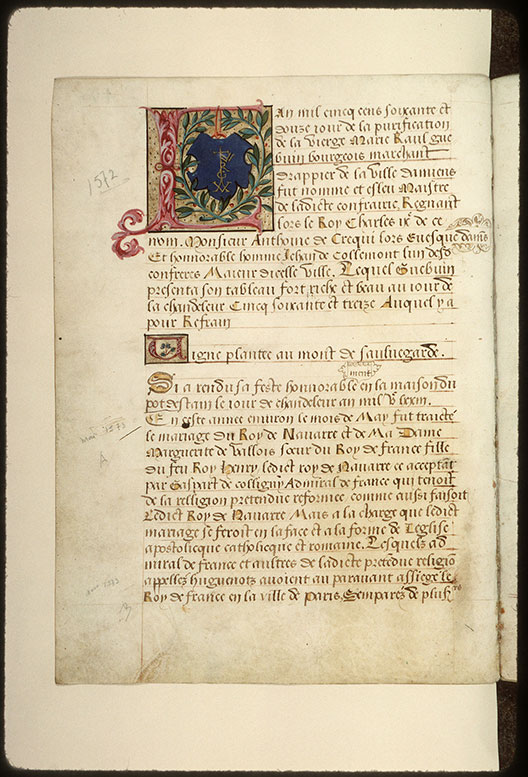 1572
Lan mil cincq cens soixante et
douze iour de la purification
de la vierge Marie Raul gue
buin bourgeois marchant
drappier de la ville damiens
fut nomme et esleu Maistre
de ladicte confrairie Regnant
lors le Roy Charles ixe de ce
nom. Monsieur Anthoine de Crequi lors Euesque damiens
Et honnorable homme Jehan de Collemont lun desd
confreres Maieur dicelle ville. Lequel Guebuin
presenta son tableau fort riche et beau au iour de
la chandeleur Cincq soixante et treize Auquel y a
pour Refrain
Vigne plantee au mont de saulnegarde.
Si a rendu sa feste honnorablement en la maison du
pot destain le iour de chandeleur an mil vc lxxiii.
En cste annee enuiron le mois de May fut traicte
le mariage du Roy de Nauarre et de Ma Dame
Marguerite de Vallois sœur du Roy de france fille
du feu Roy henry ledict roy de Nauarre ce acceptat
par Gaspart de colligny Admiral de france qui tenoit
de la relligion pretendue reformee comme aussi faisoit
Ledict Roy de Nauarre Mais a la charge que ledict
mariage se feroit en la face et a la forme de Leglise
apostolicque catholicque et romaine. Lesquelz ad
miral de france et aultres de ladicte pretedue religio
appellez huguenotz auoient au parauant assiege le
Roy de france en la ville de Paris, Semparez de plusrs
A
B